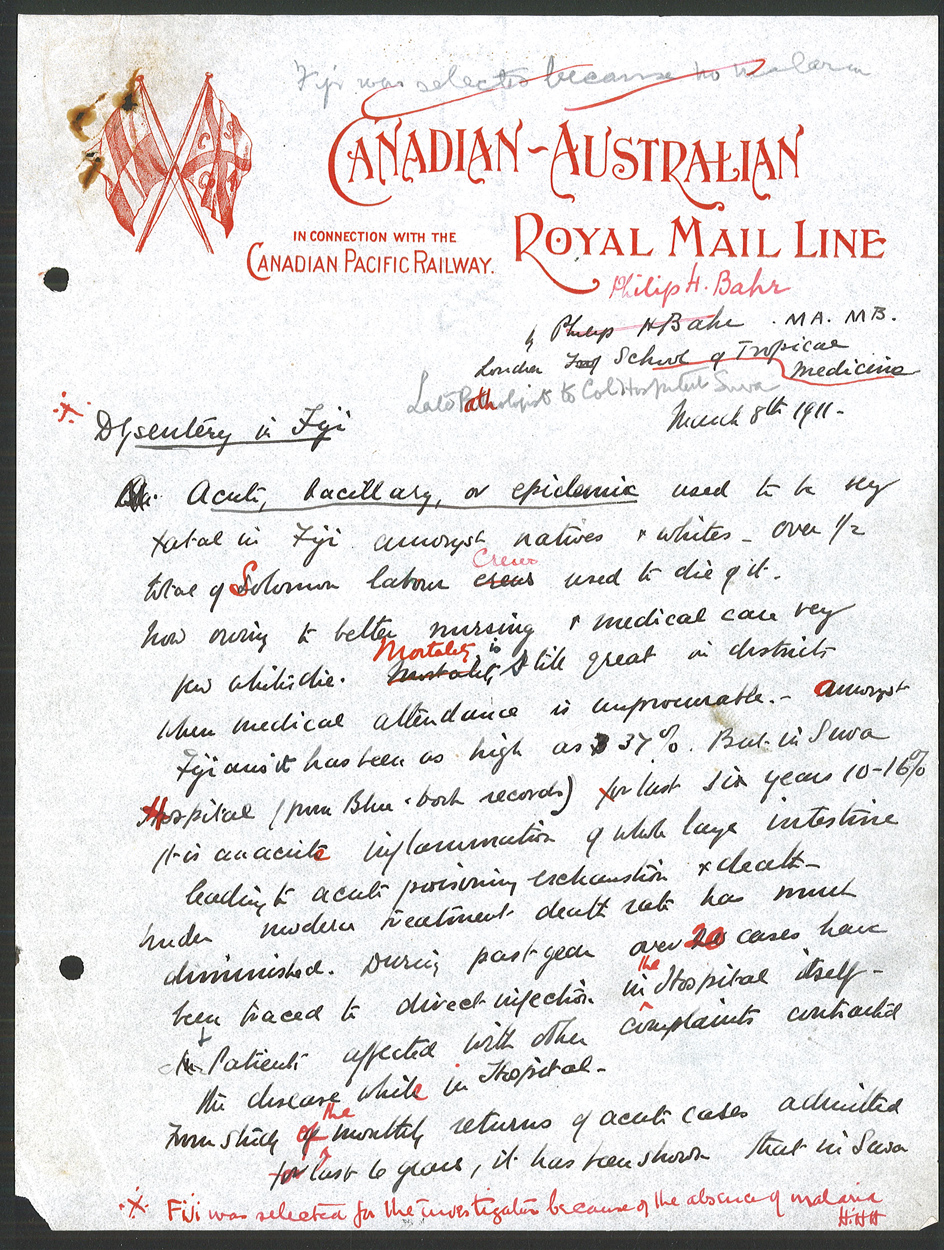 Fiji was selected because no malaria
CANADIAN-AUSTRALIAN
ROYAL MAIL LINE
IN CONNECTION WITH THE
CANADIAN PACIFIC RAILWAY.
Philip H. Bahr
by Philip H Bahr. MA. MB.
London School of Tropical
Medicine
Late Pathologist to Col Hospital Suva
March 8th 1911-
Dysentery in Fiji
Acute, bacillary, or epidemic used to be very
fatal in Fiji amongst natives & whites - over 1/2
Crews
total of Solomon labour crews used to die of it.
Now owing to better nursing & medical care very
Mortality is
few whites die. Mortality, still great in districts
when medical attendance is unprocurable.- Amongst
Fijians it has been as high as 37%. But in Suva
Hospital (from Blue-book records) for last six years 10-16%
It is an acute inflammation of whole large intestine
leading to acute poisoning exhaustion & death-
Under modern treatment death rate has much
diminished. During past year over 20 cases have
the
been traced to direct infection in Hospital itself-
Patients affected with other complaints contracted
the disease while in Hospital-
the
From study of monthly returns of acute cases admitted
for last 6 years, it has been shown that in Suva
Fiji was selected for the investigation because of the absence of malaria
H.H.H